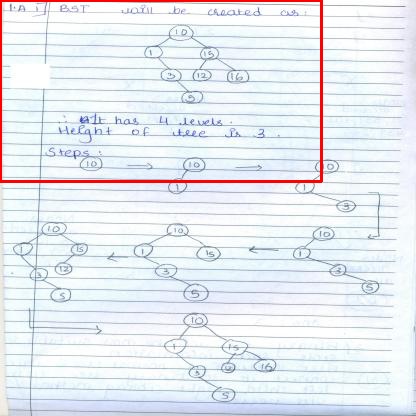 1.A i] BST will be created as:
10
1 15
3 12 16
5
∴ It has 4 levels.
Height of tree is 3.
Steps:
10 → 10 → 10
1 1
3
10 10 10
1 15 1 15 1
3 12 3 3
5 5 5
10
1 15
3 12 16
5